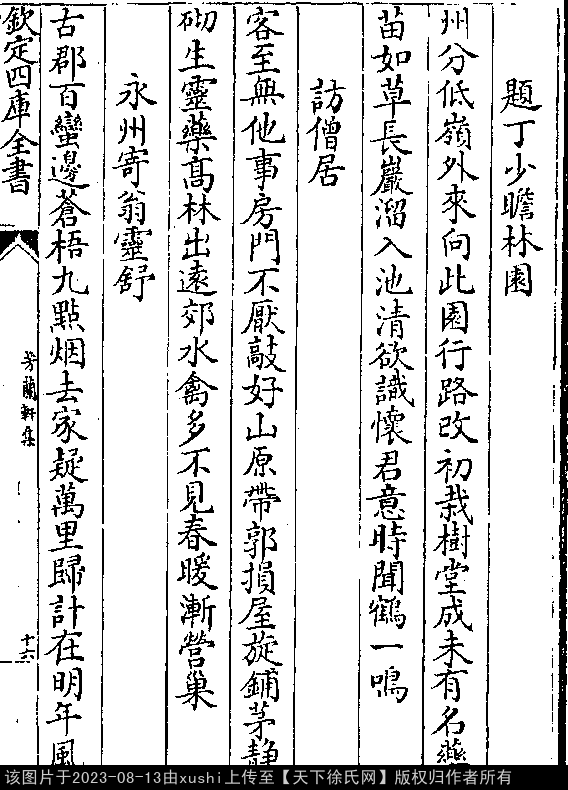 題丁少瞻林園
州分低嶺外來向此園行路改初栽樹堂成未有名藥
苗如草長巖溜入池清欲識懷君意時聞鶴一鳴
訪僧居
客至無他事房門不厭敲好山原帶郭損屋旋鋪茅静
砌生靈藥髙林出遠郊水禽多不見春暖漸營巢
永州寄翁靈舒
古郡百蠻邊蒼梧九點烟去家疑萬里歸計在明年風
欽定四庫全書
芳蘭軒集
十六
该图片于2023-08-13由xushi上传至【天下徐氏网】版权归作者所有